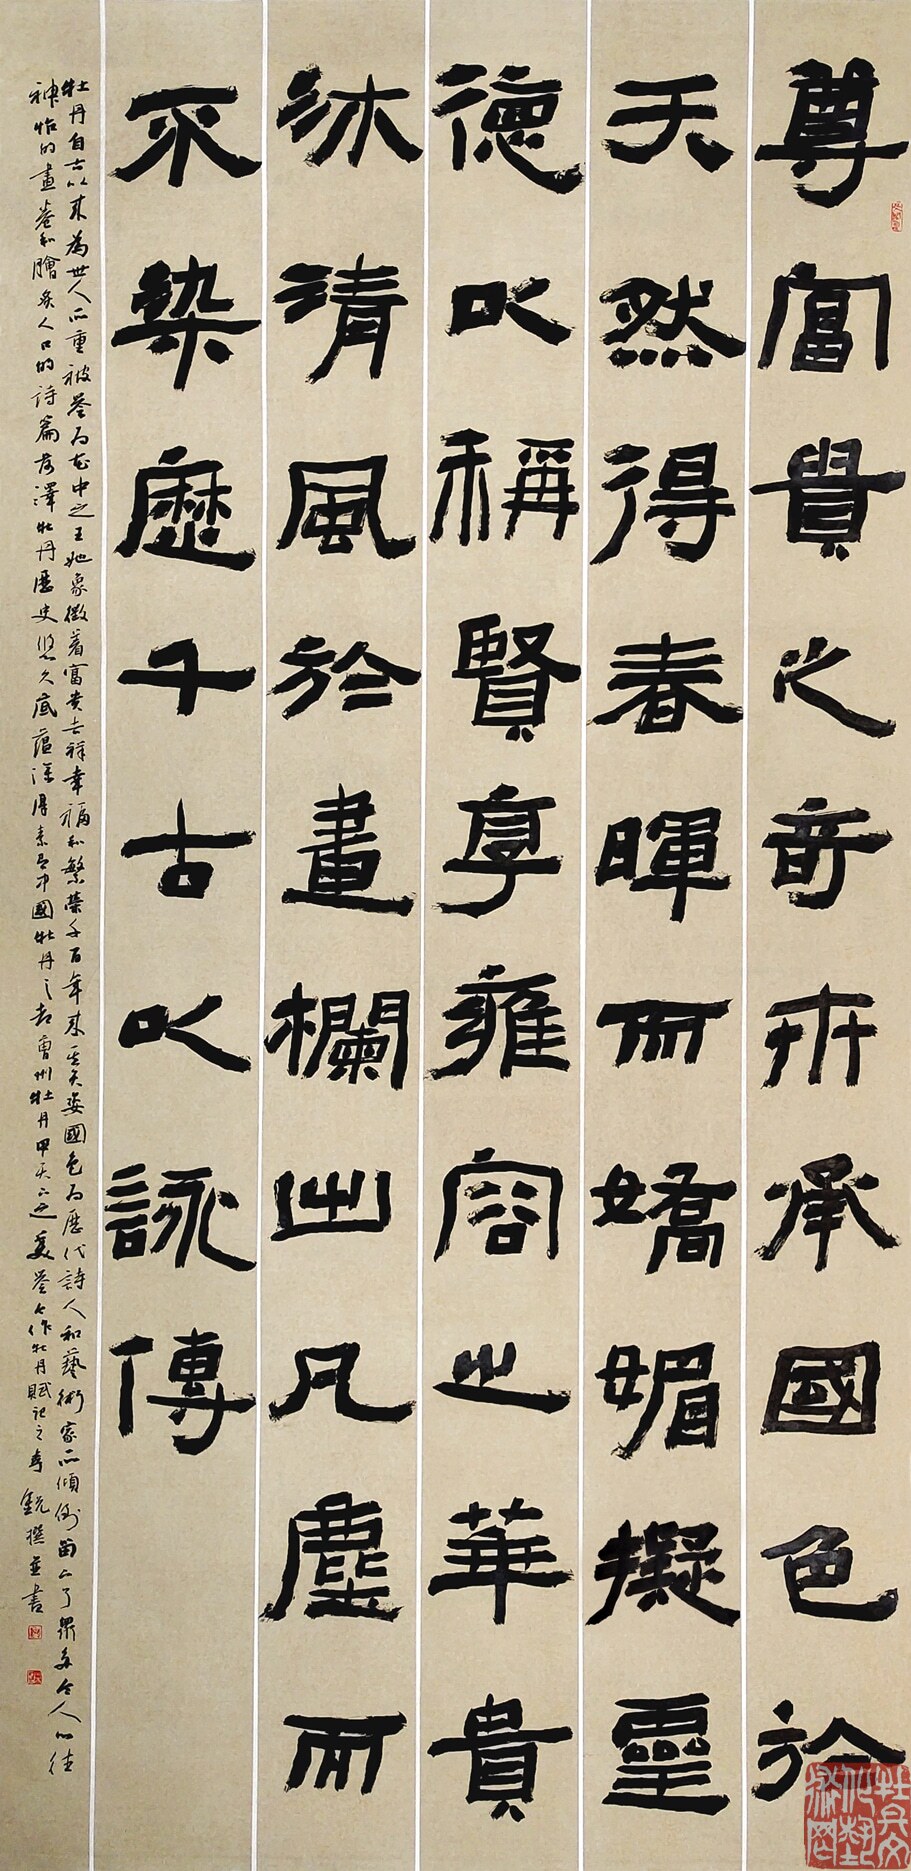 尊富貴之奇卉承國色於
天然得春暉而嬌媚擬靈
德以稱賢享雍容之華貴
沐清風於畫欄出凡塵而
不染歷千古以詠傳
牡丹自古以來為世人所重被譽為花中之王她象徵着富貴吉祥幸福和繁榮千百年來其天姿國色為歷代詩人和藝術家所傾倒留下了眾多令人心往
神怡的畫卷和膾炙人口的詩篇菏澤牡丹歷史悠久底蘊深得素有中國牡丹之都曹州牡丹甲天下之美譽今作牡丹賦記之
撰並書